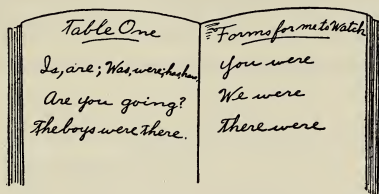 Table One
Is, are; Was, were; has, have,
Are you going?
The boys were there.
Forms for me to Watch
you were
We were
There were